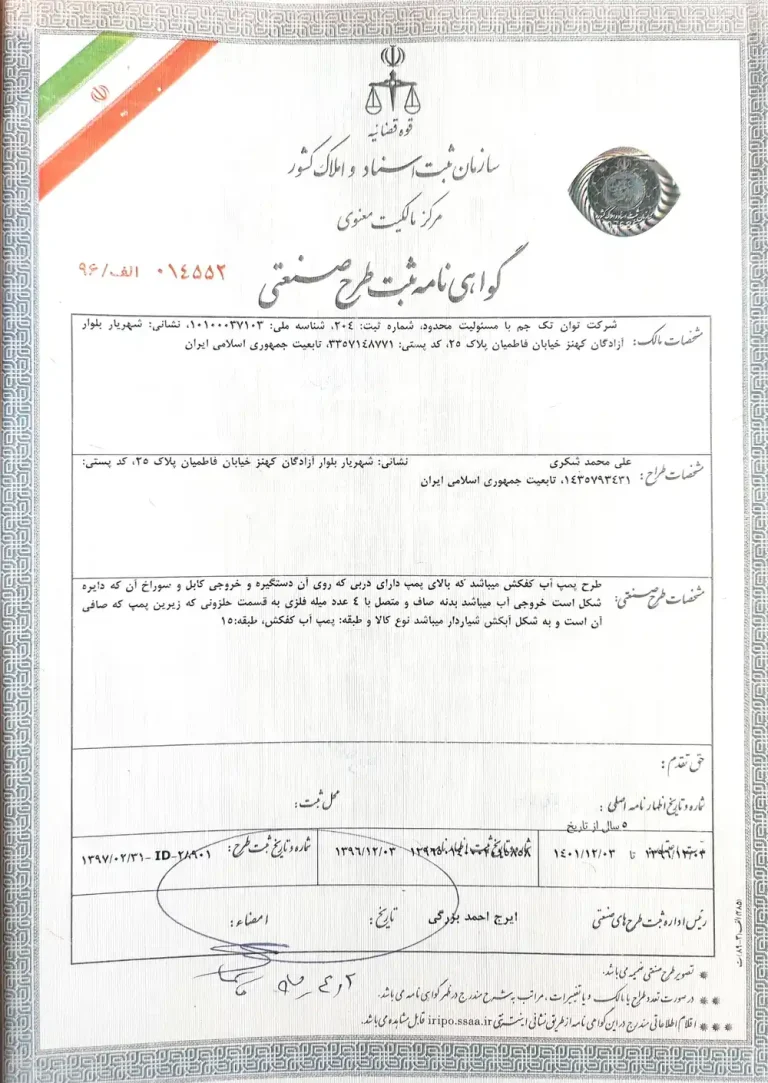 قوه قضائیه
سازمان ثبت اسناد و املاک کشور
مرکز مالکیت معنوی
گواهی نامه ثبت طرح صنعتی
۰۱٤٥٥۲ الف/۹۶
مشخصات مالک: شرکت توان تک جم با مسئولیت محدود، شماره ثبت: ۲۰٤، شناسه ملی: ۱۰۱۰۰۰۳۷۱۰۳، نشانی: شهریار بلوار
آزادگان کهنز خیابان فاطمیان پلاک ۲۵، کد پستی: ۳۳۵۷۱٤۸۷۷۱، تابعیت جمهوری اسلامی ایران
مشخصات طراح: علی محمد شکری نشانی: شهریار بلوار آزادگان کهنز خیابان فاطمیان پلاک ۲۵، کد پستی:
۱٤۳۵۷۹۳٤۳۱، تابعیت جمهوری اسلامی ایران
مشخصات طرح صنعتی: طرح پمپ آب کفکش میباشد که بالای پمپ دارای دربی که روی آن دستگیره و خروجی کابل و سوراخ آن که دایره
شکل است خروجی آب میباشد بدنه صاف و متصل با ٤ عدد میله فلزی به قسمت حلزونی که زیرین پمپ که صافی
آن است و به شکل آبکش شیاردار میباشد نوع کالا و طبقه: پمپ آب کفکش، طبقه:۱۵
حق تقدم:
شماره و تاریخ اظهارنامه اصلی: محل ثبت:
۵ سال از تاریخ
تا ۱٤۰۱/۱۲/۰۳
۱۳۹۶/۱۲/۰۳
شماره و تاریخ ثبت طرح: ۱۳۹۷/۰۲/۳۱-ID-
رئیس اداره ثبت طرح های صنعتی ایرج احمد بزرگی تاریخ: امضاء:
* تصویر طرح صنعتی ضمیمه می باشد.
* * در صورت تعدد طراح یا مالک و یا تغییرات، مراتب به شرح مندرج در ظهر گواهی نامه می باشد.
* * * اقلام اطلاعاتی مندرج در این گواهی نامه از طریق نشانی اینترنتی iripo.ssaa.ir قابل مشاهده می باشد.